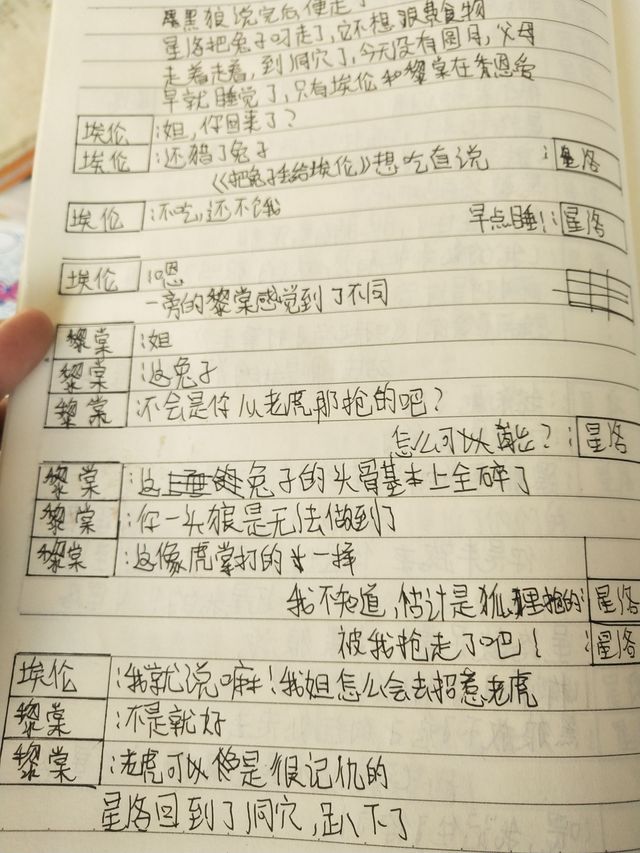 黑狼说完后便走了
星洛把兔子叼走了,它不想浪费食物
走着走着,到洞穴了,今天没有圆月,父母
早就睡觉了,只有埃伦和黎棠在秀恩爱
埃伦:姐,你回来了?
埃伦:还猎了兔子
《把兔子丢给埃伦》想吃直说:星洛
埃伦:不吃,还不饿
早点睡!:星洛
埃伦:嗯
一旁的黎棠感觉到了不同
黎棠:姐
黎棠:这兔子
黎棠:不会是你从老虎那抢的吧?
怎么可以看出?:星洛
黎棠:这兔子的头骨基本上全碎了
黎棠:你一头狼是无法做到了
黎棠:这像虎掌打的一样
我不知道,估计是狐狸抢的:星洛
被我抢走了吧!:星洛
埃伦:我就说嘛!我姐怎么会去招惹老虎
黎棠:不是就好
黎棠:老虎可以是很记仇的
星洛回到了洞穴,趴下了